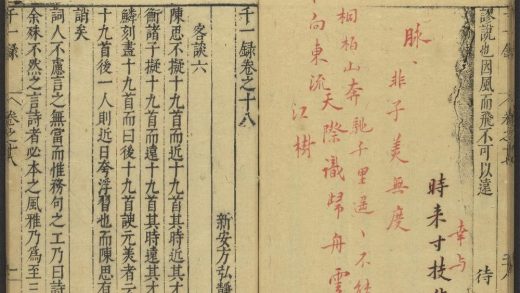 卷之十七
謬說也因風而飛不可以遠
待
幸与
時来寸技
脉、韭子美無度
桐柏山奔馳千里遥〻不
向東流天際識歸舟雲
江樹
千一錄卷之十八
新安方弘靜
客談六
陳思不擬十九首而近十九首其時近其才
衡諸子擬十九首而遠十九首其時遠其才
鱗刻畫十九首而曰後十九首謏元美者云
十九首後一人則近日夸浮習也而陳思有
誚矣
詞人不慮言之無當而惟務句之工乃曰詩
余殊不然之言詩者必本之風雅乃為至三
千一錄 卷之十八 一